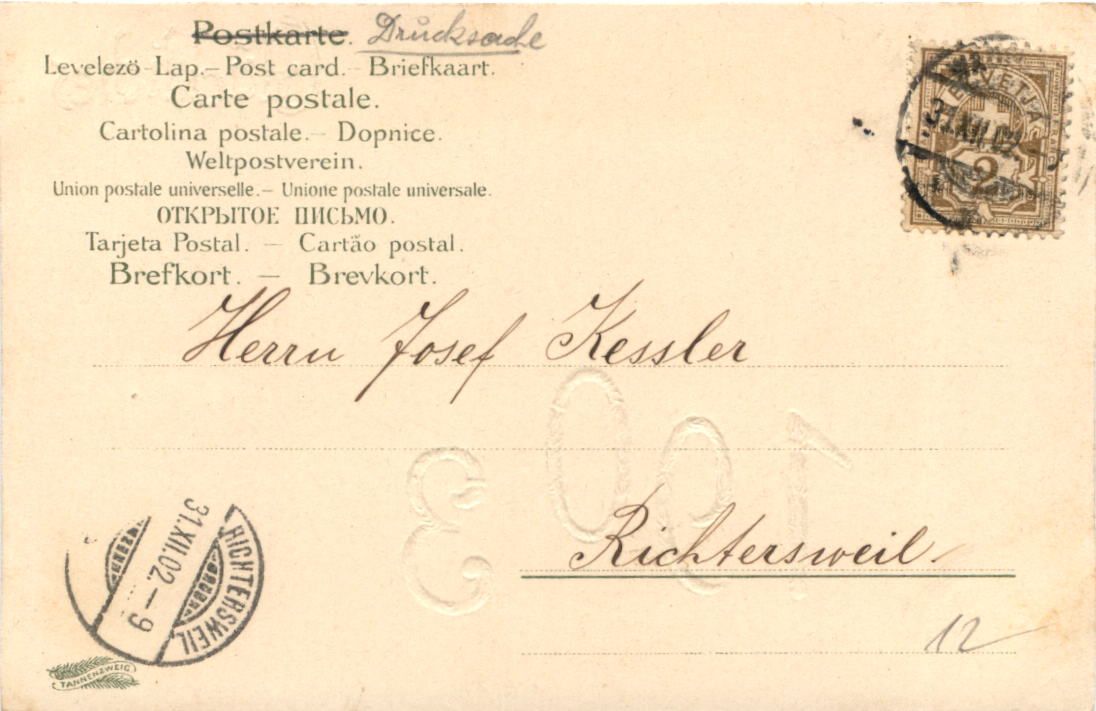 Postkarte. Drucksache
Levelezö-Lap.– Post card.– Briefkaart.
Carte postale.
Cartolina postale.– Dopnice.
Weltpostverein.
Union postale universelle.– Unione postale universale.
ОТКРЫТОЕ ПИСЬМО.
Tarjeta Postal. – Cartão postal.
Brefkort. – Brevkort.
31.XII.02
2
Herrn Josef Kessler
1903
Richtersweil.
RICHTERSWEIL
31.XII.02.–9
12
TANNENZWEIG